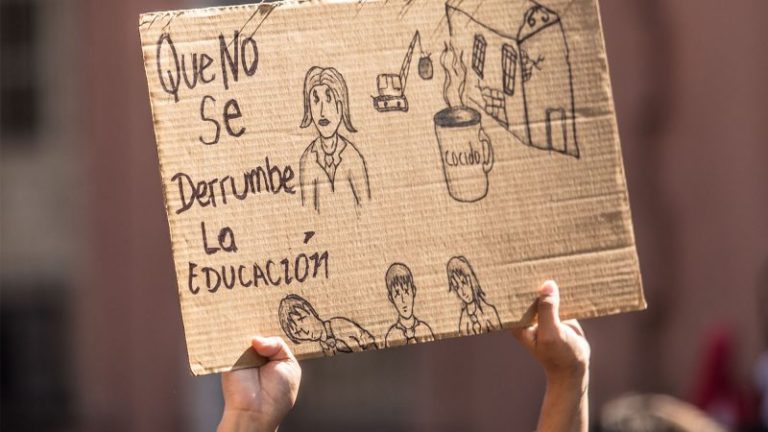 Que No
Se
Derrumbe
La
EDUCACIÓN
cocido